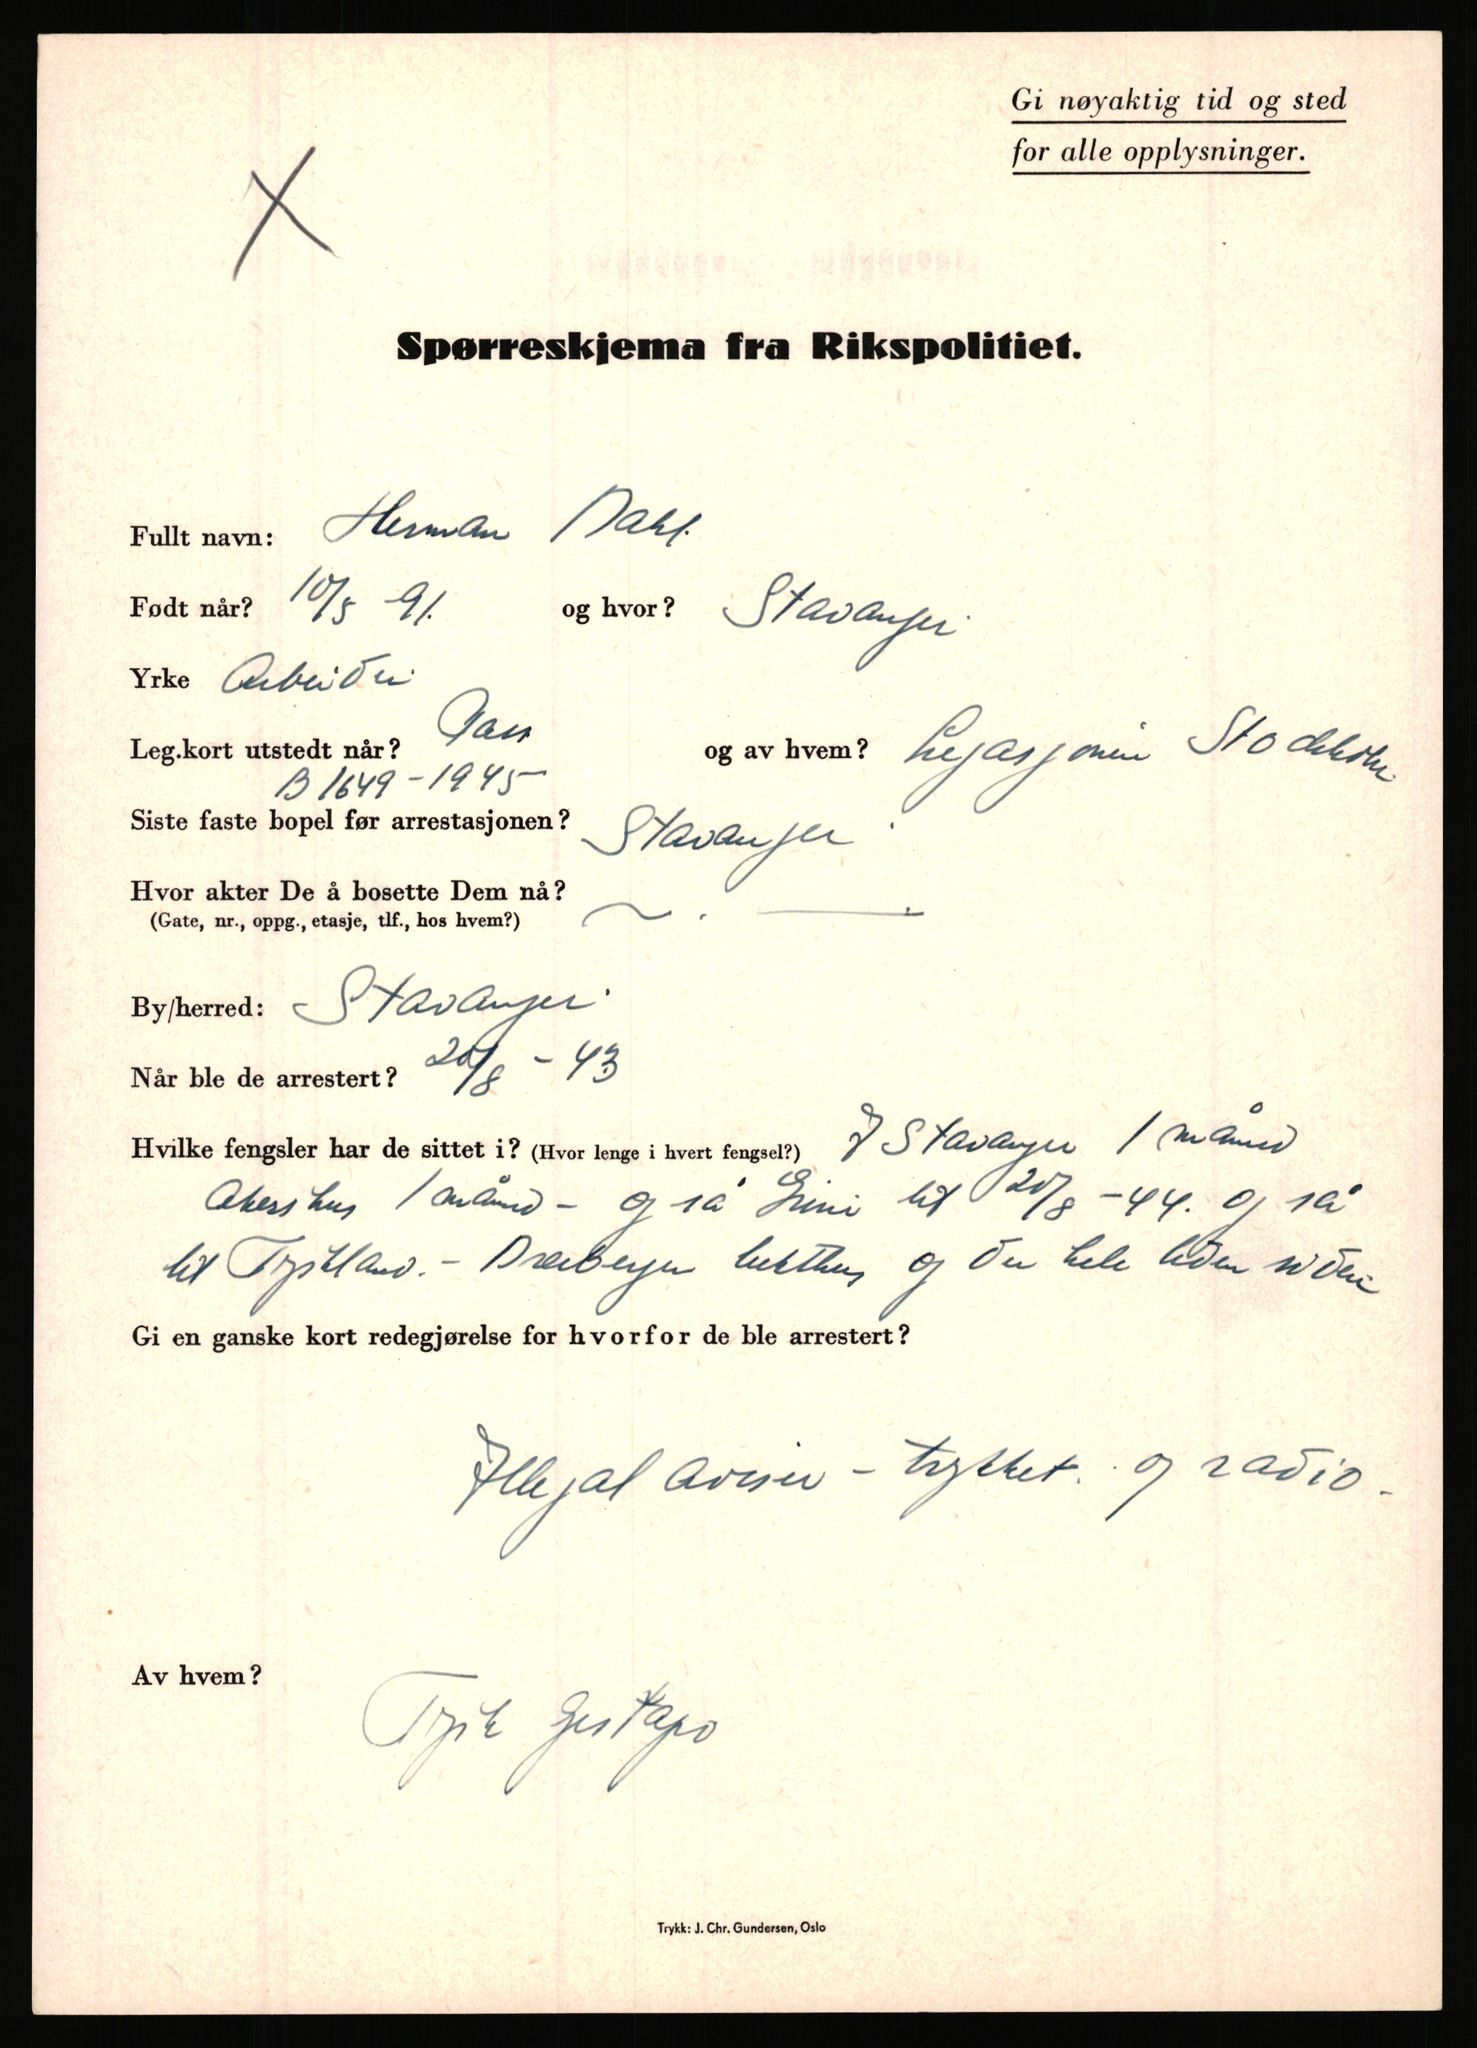 Gi nøyaktig tid og sted
for alle opplysninger.
X
Spørreskjema fra Rikspolitiet.
Fullt navn: Herman Dahl.
Født når? 10/5 - 91. og hvor? Stavanger
Yrke Arbeider
Leg.kort utstedt når? Pass og av hvem? Legasjonen Stockholm
B 1649 - 1945
Siste faste bopel før arrestasjonen? Stavanger
Hvor akter De å bosette Dem nå?
(Gate, nr., oppg., etasje, tlf., hos hvem?) — . —
By/herred: Stavanger
Når ble de arrestert? 20/8 - 43
Hvilke fengsler har de sittet i? (Hvor lenge i hvert fengsel?) I Stavanger 1 måned
Akershus 1 måned - og så Grini til 20/8 - 44. og så
til Tyskland. - Dreibergen tukthus og der hele tiden siden
Gi en ganske kort redegjørelse for hvorfor de ble arrestert?
Illegal aviser - trykket. og radio -
Av hvem?
Tysk Gestapo
Trykk: J. Chr. Gundersen, Oslo